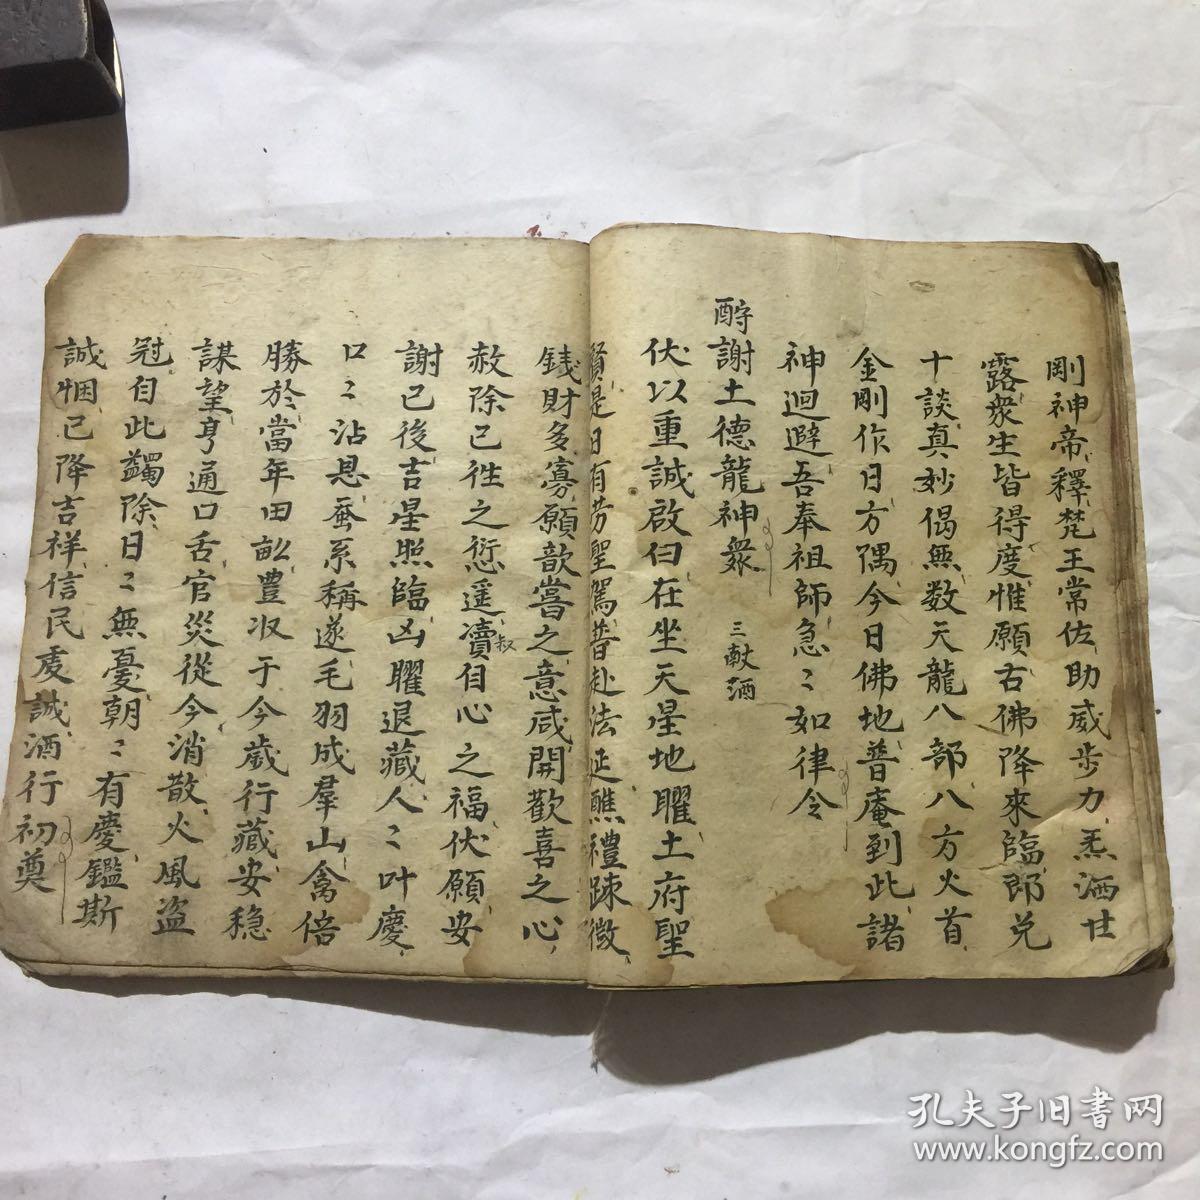 剛神帝釋梵王常佐助威步力丟洒甘
露衆生皆得度惟願古佛降來臨郎兑
十談真妙偈無数天龍八部八方火首
金剛作日方隅今日佛地普庵到此諸
神迴避吾奉祖師急〻如律令
酧謝土德龍神衆 三献酒
伏以重誠啟白在坐天星地曜土府聖
賢是日有劳聖駕普赴法延醮禮疎微
錢財多寡願歆嘗之意咸開歡喜之心
赦除已徃之愆遥瀆自心之福伏願安
叔
謝已後吉星照臨凶曜退藏人〻叶慶
口〻沾恩蚕系稱遂毛羽成羣山禽倍
勝於當年田畝豊收于今歲行藏安穏
謀望亨通口舌官災從今消散火風盗
冦自此蠲除日〻無憂朝〻有慶鑑斯
誠悃已降吉祥信民虔誠酒行初奠
孔夫子旧书网
www.kongfz.com